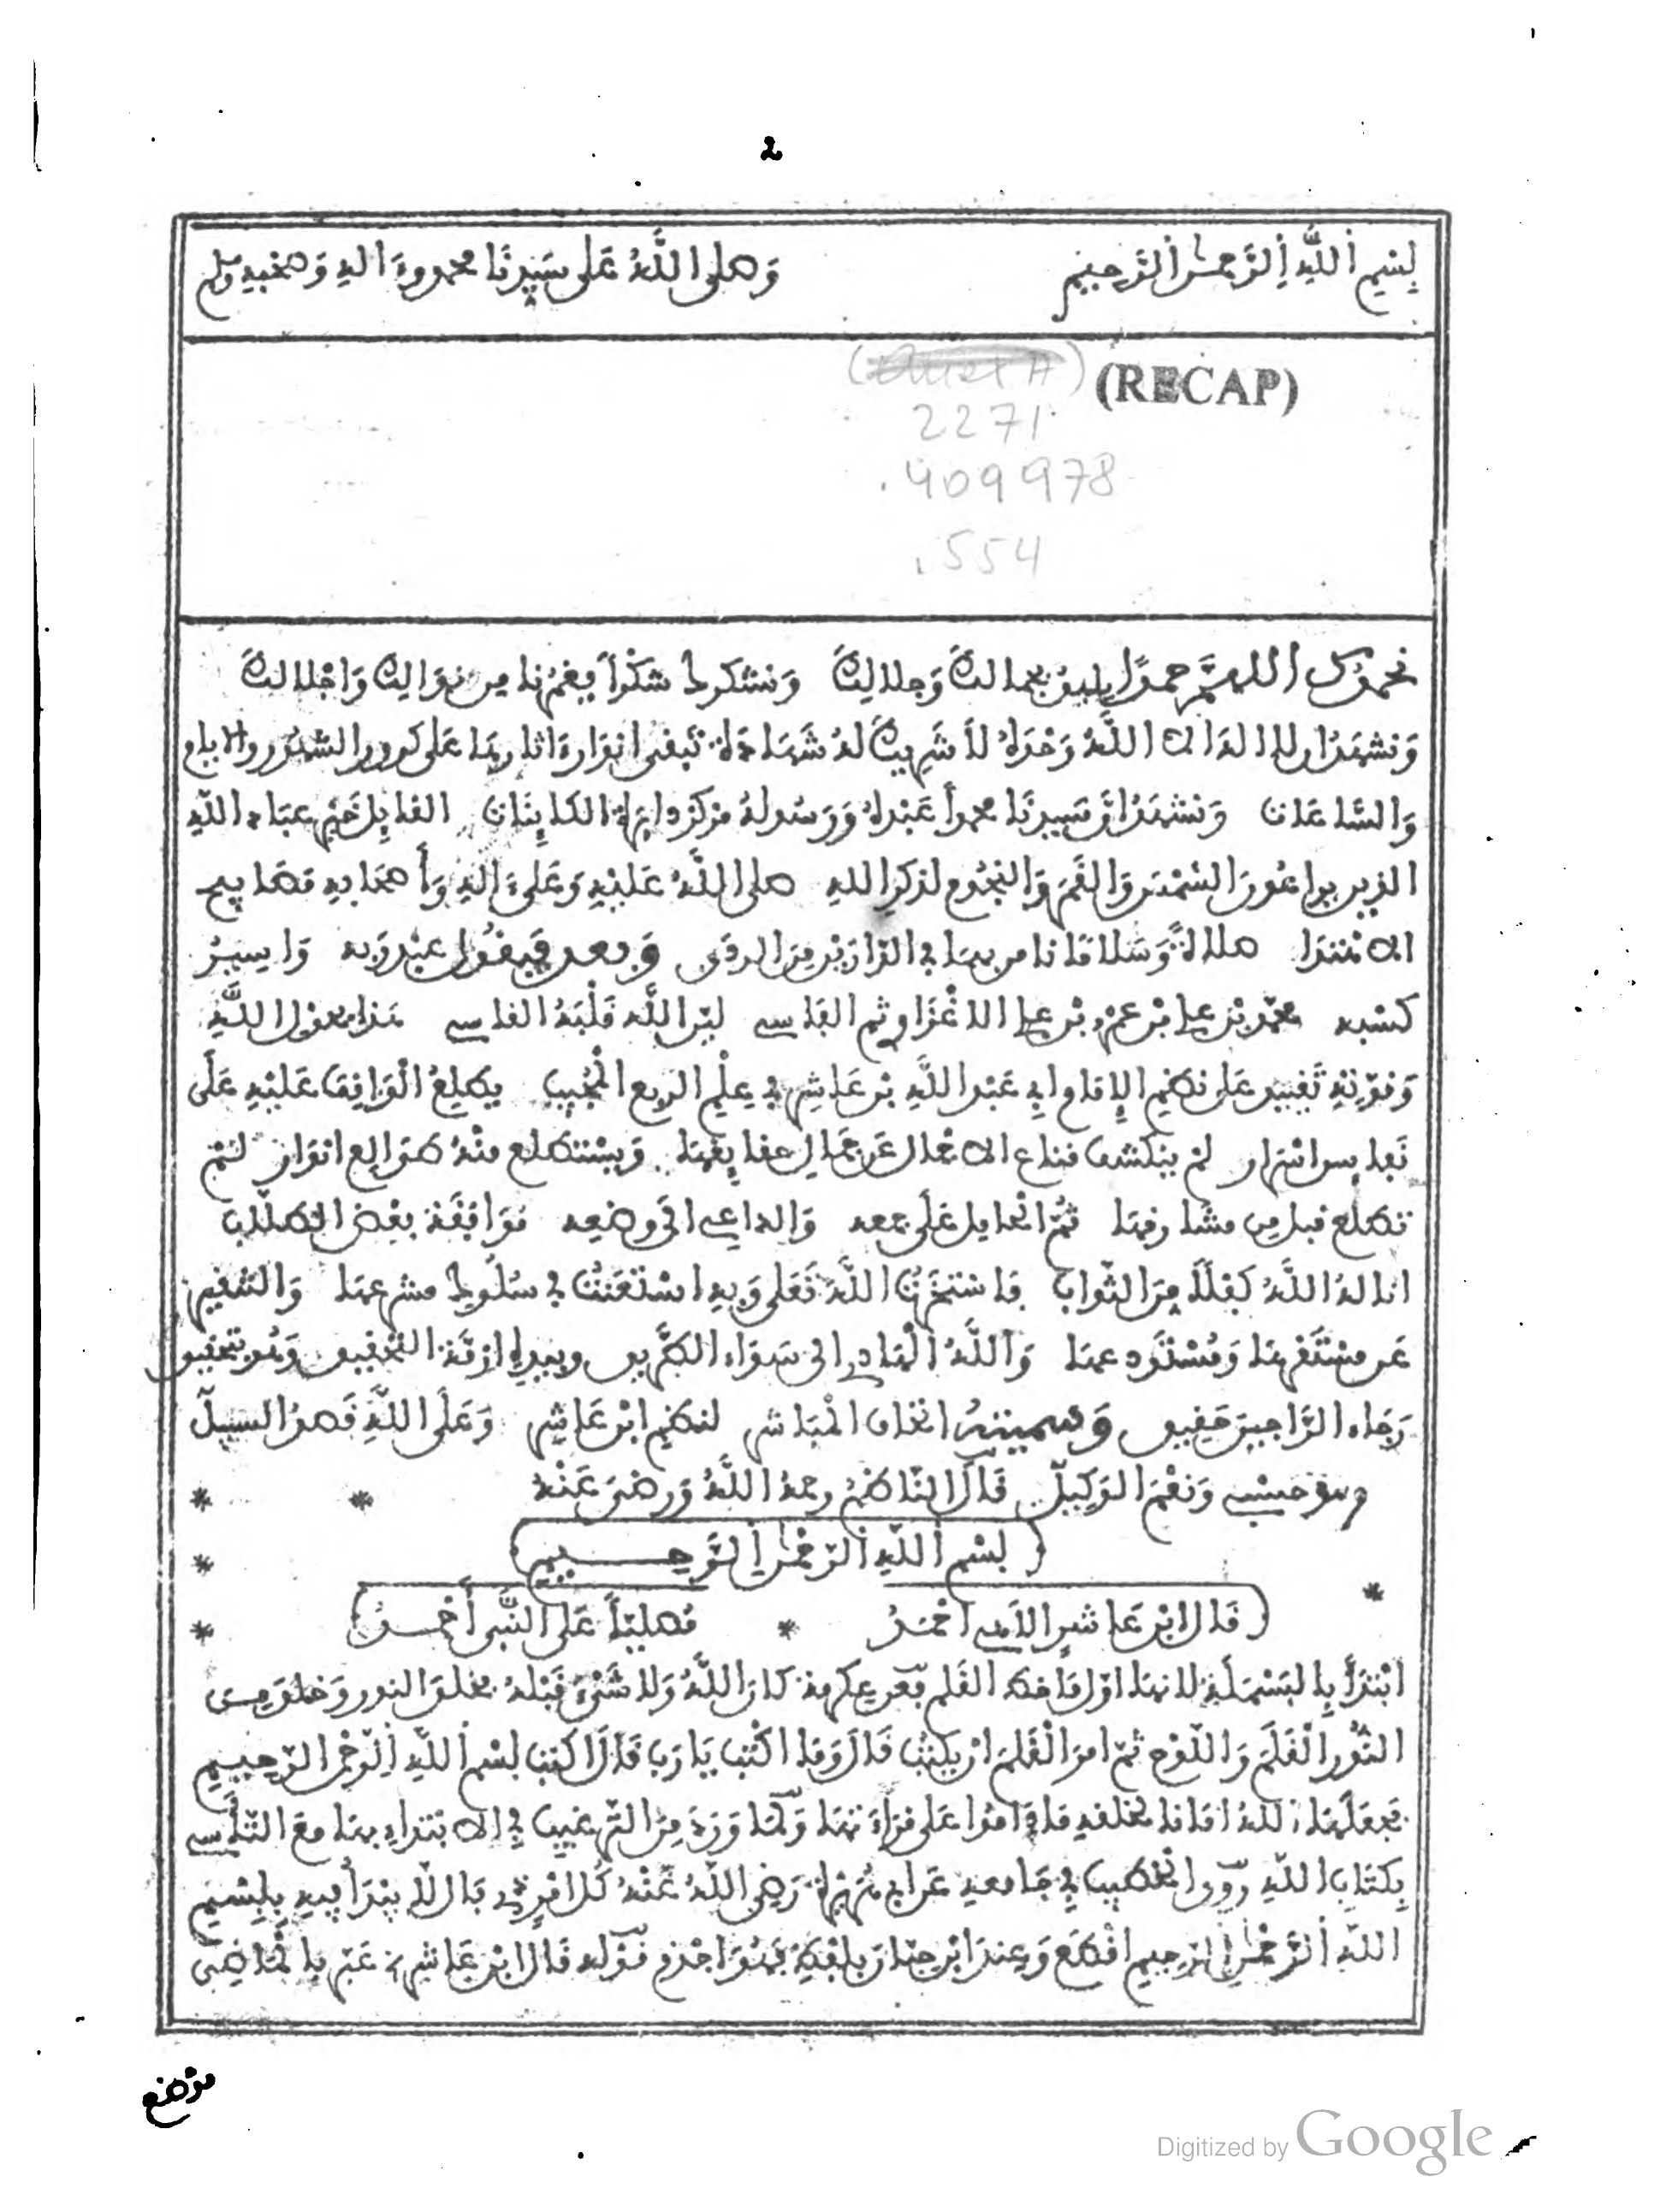 2
بِسْمِ اللَّهِ الرَّحْمٰنِ الرَّحِيمِ وَصَلَّى اللَّهُ عَلَى سَيِّدِنَا مُحَمَّدٍ وَءَالِهِ وَصَحْبِهِ وَسَلَّمَ
(RECAP)
2271
.409978
.554
نحمدك اللهم حمدًا يليق بجمالك وجلالك ونشكرك شكرًا يغمرنا من نوالك واجلالك
ونشهد ان لا اله الا الله وحده لا شريك له شهادة تبقى انوار ءاثارها على كرور الشهور والايام
والساعات ونشهد ان سيدنا محمدا عبده ورسوله مركز دايرة الكاينات القايل خير عباد الله
الذين يراعون الشمس والقمر والنجوم لذكر الله صلى الله عليه وعلى ءاله وأصحابه مصابيح
الاهتدا صلاة وسلاما نامن بهما في الدارين من الردى وبعد فيقول عبد ربه واسير
كسبه محمد بن علي بن عمر بن علي الاغزاوي ثم الفاسي ليّن الله قلبه القاسي هذا بعون الله
وقوته تقييد على نظم الامام ابي عبد الله بن عاشر في علم الربع المجيب يطلع الواقف عليه على
نفايس اسرار لم ينكشف قناع الاغفال عن جمال حقايقها ويستطلع منه طوالع انوار لم
تطلع قبل من مشارقها ثم الحامل على جمعه والداعي الى وضعه موافقة بعض الطلاب
انا له الله كفلا من الثواب فاستخرت الله تعالى وبه استعنت في سلوك مشرعها والتنفير
عن مستقرها ومستودعها والله الهادي الى سواء الطريق وبيده ازمة التحقيق وهو بتحقيق
رجاء الراجين حقيق وسميته اتحاف المباشر لنظم ابن عاشر وعلى الله قصد السبيل
وهو حسبي ونعم الوكيل قال الناظم رحمه الله ورضي عنه * *
بسم الله الرحمٰن الرحيم *
قال ابن عاشر الامي احمد * مصليًا على النبي أحمد *
ابتدأ بالبسملة لانها اول ما خط القلم فعن عكرمة كان الله ولا شيء قبله فخلق النور وخلق من
النور القلم واللوح ثم امر القلم ان يكتب قال وما اكتب يا رب قال اكتب بسم الله الرحمن الرحيم
فجعلها الله امانا لخلقه ما داموا على قراءتها ولما ورد من الترغيب في الابتداء بها مع التأسي
بكتاب الله روى الخطيب في جامعه عن ابي هريرة رضي الله عنه كل امر ذي بال لا يبدأ فيه ببسم
الله الرحمن الرحيم اقطع وعند ابن حبان بلفظ فهو اجذم قوله قال ابن عاشر عبر بالماضي
موضع
Digitized by Google